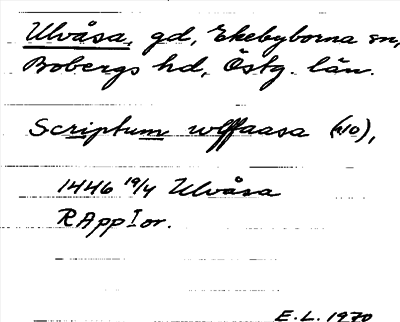 Ulvåsa, gd, Ekebyborna sn,
Bobergs hd, Östg. län.
Scriptum wlffaasa (uo),
1446 19/4 Ulvåsa
RAppIor.
E.L. 1970